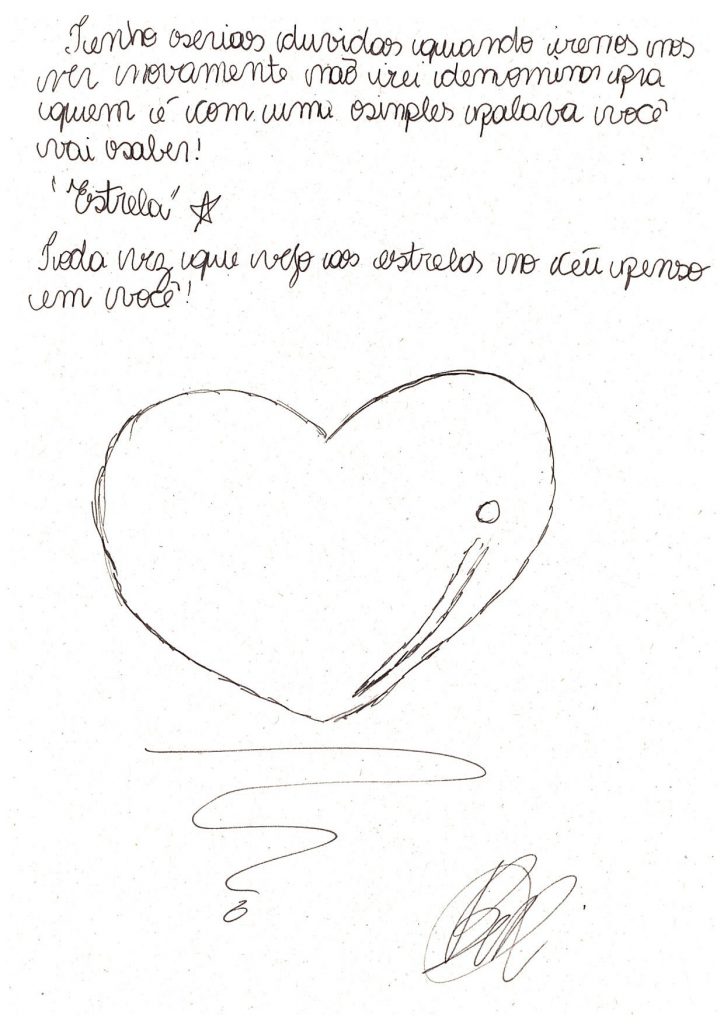 Tenho serias duvidas quando iremos nos
ver novamente não irei denominar pra
quem é com uma simples palava você
vai saber!
"Estrela"
Toda vez que vejo as estrelas no céu penso
em você!